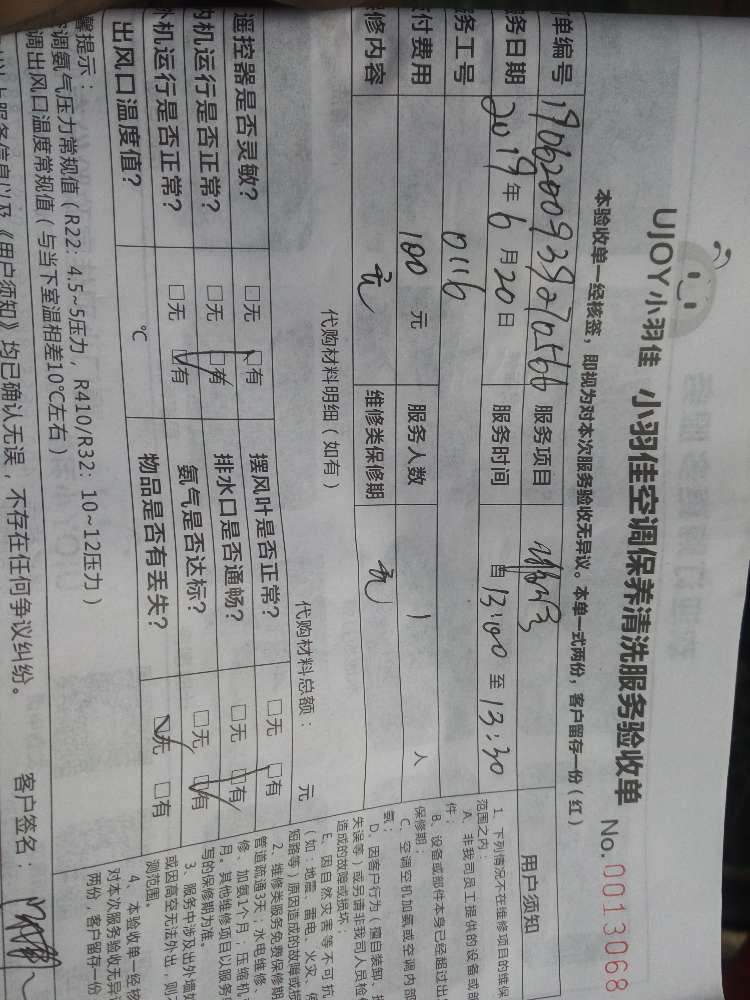 UJOY小羽佳 小羽佳空调保养清洗服务验收单 No.0013068
本验收单一经核签，即视为对本次服务验收无异议。本单一式两份，客户留存一份（红）
单编号 服务项目
务日期 2019年6月20日 服务时间 自13:00至13:30
务工号 0116
付费用 100 元 服务人数 1 人
修内容 无 维修类保修期 无
代购材料明细（如有） 代购材料总额： 元
遥控器是否灵敏？ □无 □有 摆风叶是否正常？ □无 □有
内机运行是否正常？ □无 □有 排水口是否通畅？ □无 □有
外机运行是否正常？ □无 □有 氨气是否达标？ □无 □有
出风口温度值？ ℃ 物品是否有丢失？ □无 □有
馨提示：
调氨气压力常规值（R22：4.5~5压力，R410/R32：10~12压力）
调出风口温度常规值（与当下室温相差10℃左右）
以上服务信息以及《用户须知》均已确认无误，不存在任何争议纠纷。 客户签名：
用户须知
1、下列情况不在维修项目的维保
范围之内：
A、非我司员工提供的设备或部
件；
B、设备或部件本身已经超过出
保修期；
C、空调空机加氨或空调内部
氨；
D、因客户行为（擅自装卸、
失误等）或另请非我司人员检
造成的故障或损坏；
E、因自然灾害等不可抗
（如：地震、雷电、火灾、
短路等）原因造成的故障或损
2、维修类服务免费保修期
管道疏通3天；水电维修、
修、加氨1个月；压缩机
月。其他维修项目以服务
写的保修期为准。
3、服务中涉及出外墙
或因高空无法外出，则
测范围。
4、本验收单一经核
对本次服务验收无异
两份，客户留存一份